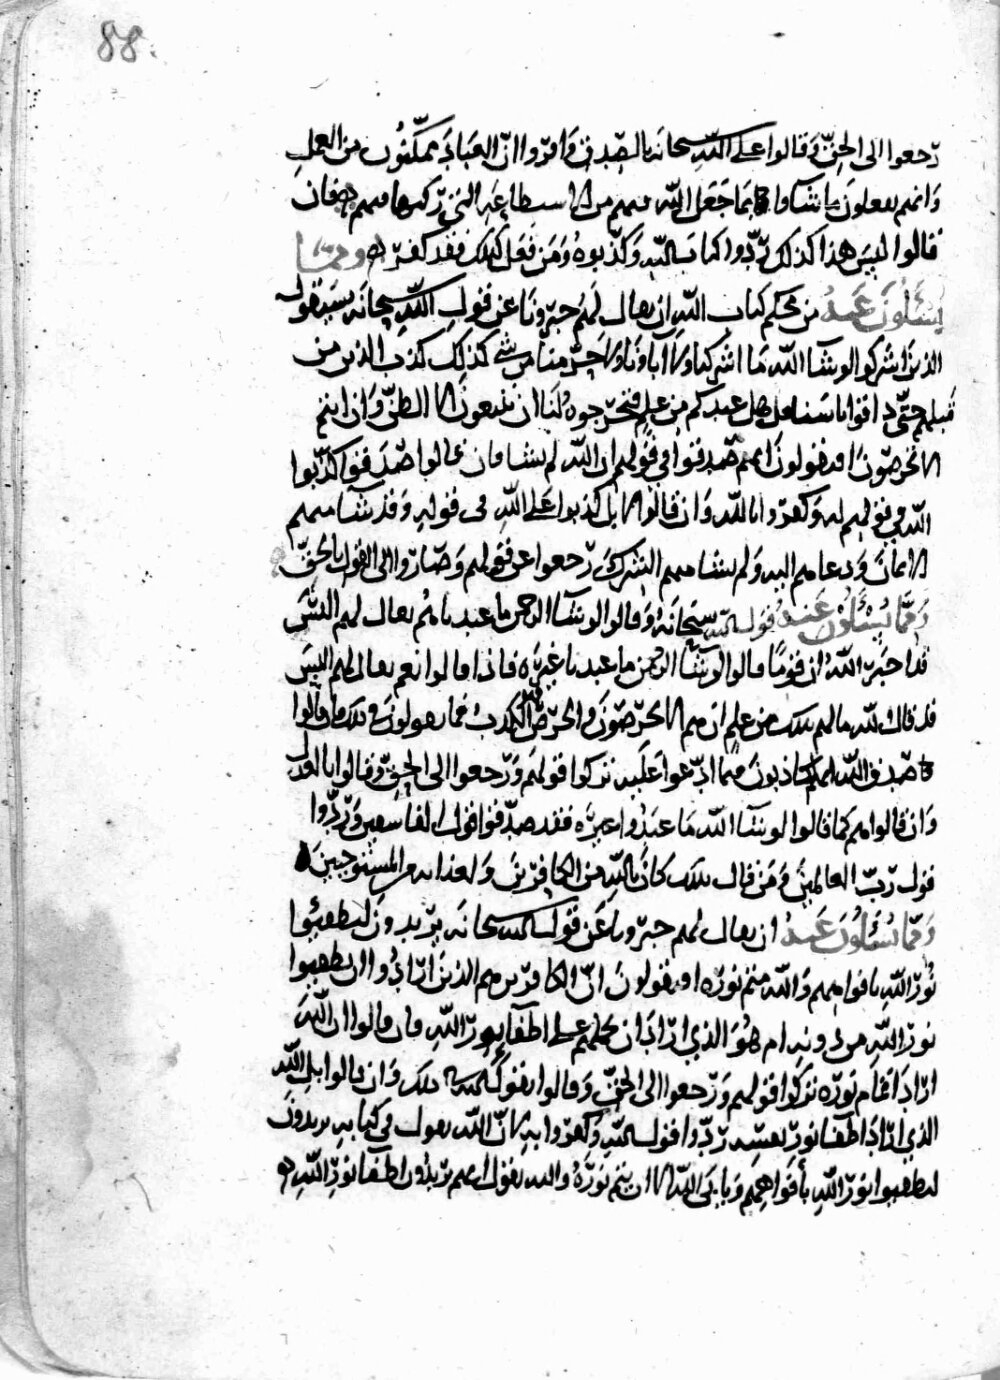 88
رجعوا الى الحق وقالوا على الله سبحانه بالصدق واقروا ان العباد ممكنون من العمل
وانهم يفعلون ما شاوا بما جعل الله فيهم من الاستطاعة التي ركبها فيهم فان
قالوا ليس هذا كذلك ردوا كتاب الله وكذبوه ومن فعل ذلك فقد كفر ومما
يسئلون عنه من محكم كتاب الله ان يقال لهم خبرونا عن قول الله سبحانه سيقول
الذين اشركوا لو شا الله ما اشركنا ولا آباونا ولا حرمنا من شي كذلك كذب الذين من
قبلهم حتى ذاقوا باسنا قل هل عندكم من علم فتخرجوه لنا ان تتبعون الا الظن وان انتم
الا تخرصون افتقولون انهم صدقوا في قولهم ان الله لم يشا فان قالوا صدقوا كذبوا
الله في قولهم له وكفروا بالله وان قالوا لا بل كذبوا على الله في قوله وقد شا منهم
الايمان ودعاهم اليه ولم يشا منهم الشرك رجعوا عن قولهم وصاروا الى القول بالحق
ومما يسئلون عنه قول الله سبحانه وقالوا لو شا الرحمن ما عبدناهم يقال لهم اليس
قد اخبر الله ان قوما قالوا لو شا الرحمن ما عبدنا غيره فاذا قالوا نعم يقال لهم اليس
قد قال الله ما لهم بذلك من علم ان هم الا يخرصون والخرص الكذب فما يقولون في ذلك ما قالوا
صدق الله انهم كاذبون فيما ادعوا عليه تركوا قولهم ورجعوا الى الحق وقالوا بالعدل
وان قالوا هم كما قالوا لو شا الله ما عبدوا غيره فقد صدقوا قول الفاسقين وردوا
قول رب العالمين ومن قال بذلك كان بالله من الكافرين ولعذابه من المستوجبين
ومما يسئلون عنه ان يقال لهم خبرونا عن قول الله سبحانه يريدون ليطفئوا
نور الله بافواههم والله متم نوره افيقولون ان الكافرين هم الذين ارادوا ان يطفيوا
نور الله من دونه ام هو الذي اراد ان يحملهم على اطفا نور الله فان قالوا ان الله
اراد اتمام نوره تركوا قولهم ورجعوا الى الحق وقالوا بقول الله في ذلك وان قالوا بل الله
الذي اراد اطفا نور نفسه ردوا قول الله وكفروا به لان الله يقول في كتابه يريدون
ليطفيوا نور الله بأفواههم ويابى الله الا ان يتم نوره والله يقول انهم يريدون اطفا نور الله